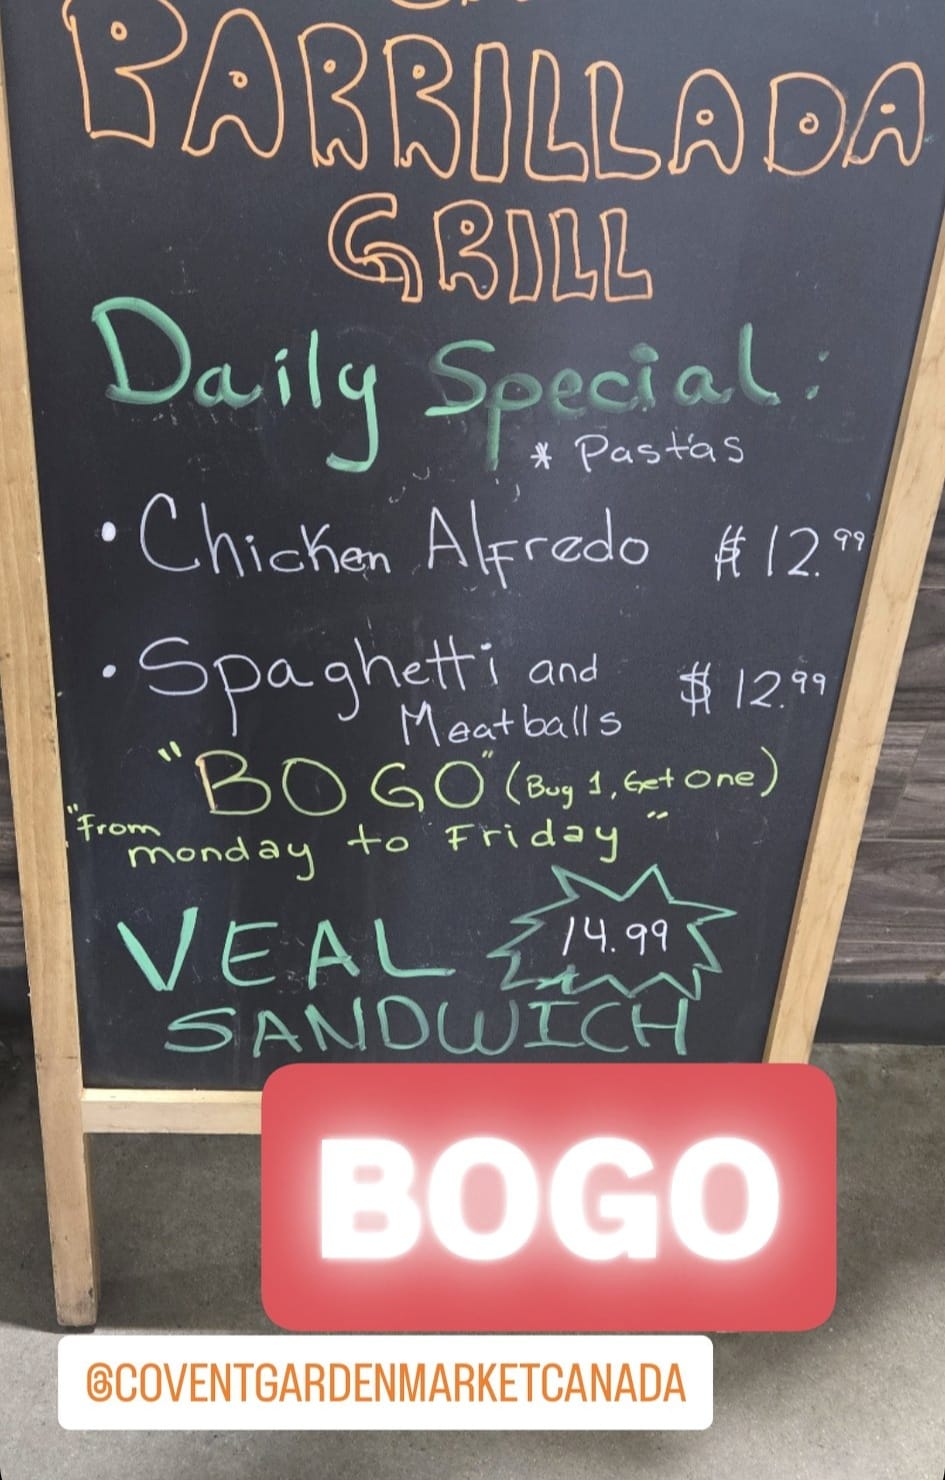 PARRILLADA
GRILL
Daily Special:
* Pastas
• Chicken Alfredo $12.99
• Spaghetti and $12.99
Meatballs
"BOGO" (Buy 1, Get One)
"From
monday to Friday"
VEAL 14.99
SANDWICH
BOGO
@COVENTGARDENMARKETCANADA